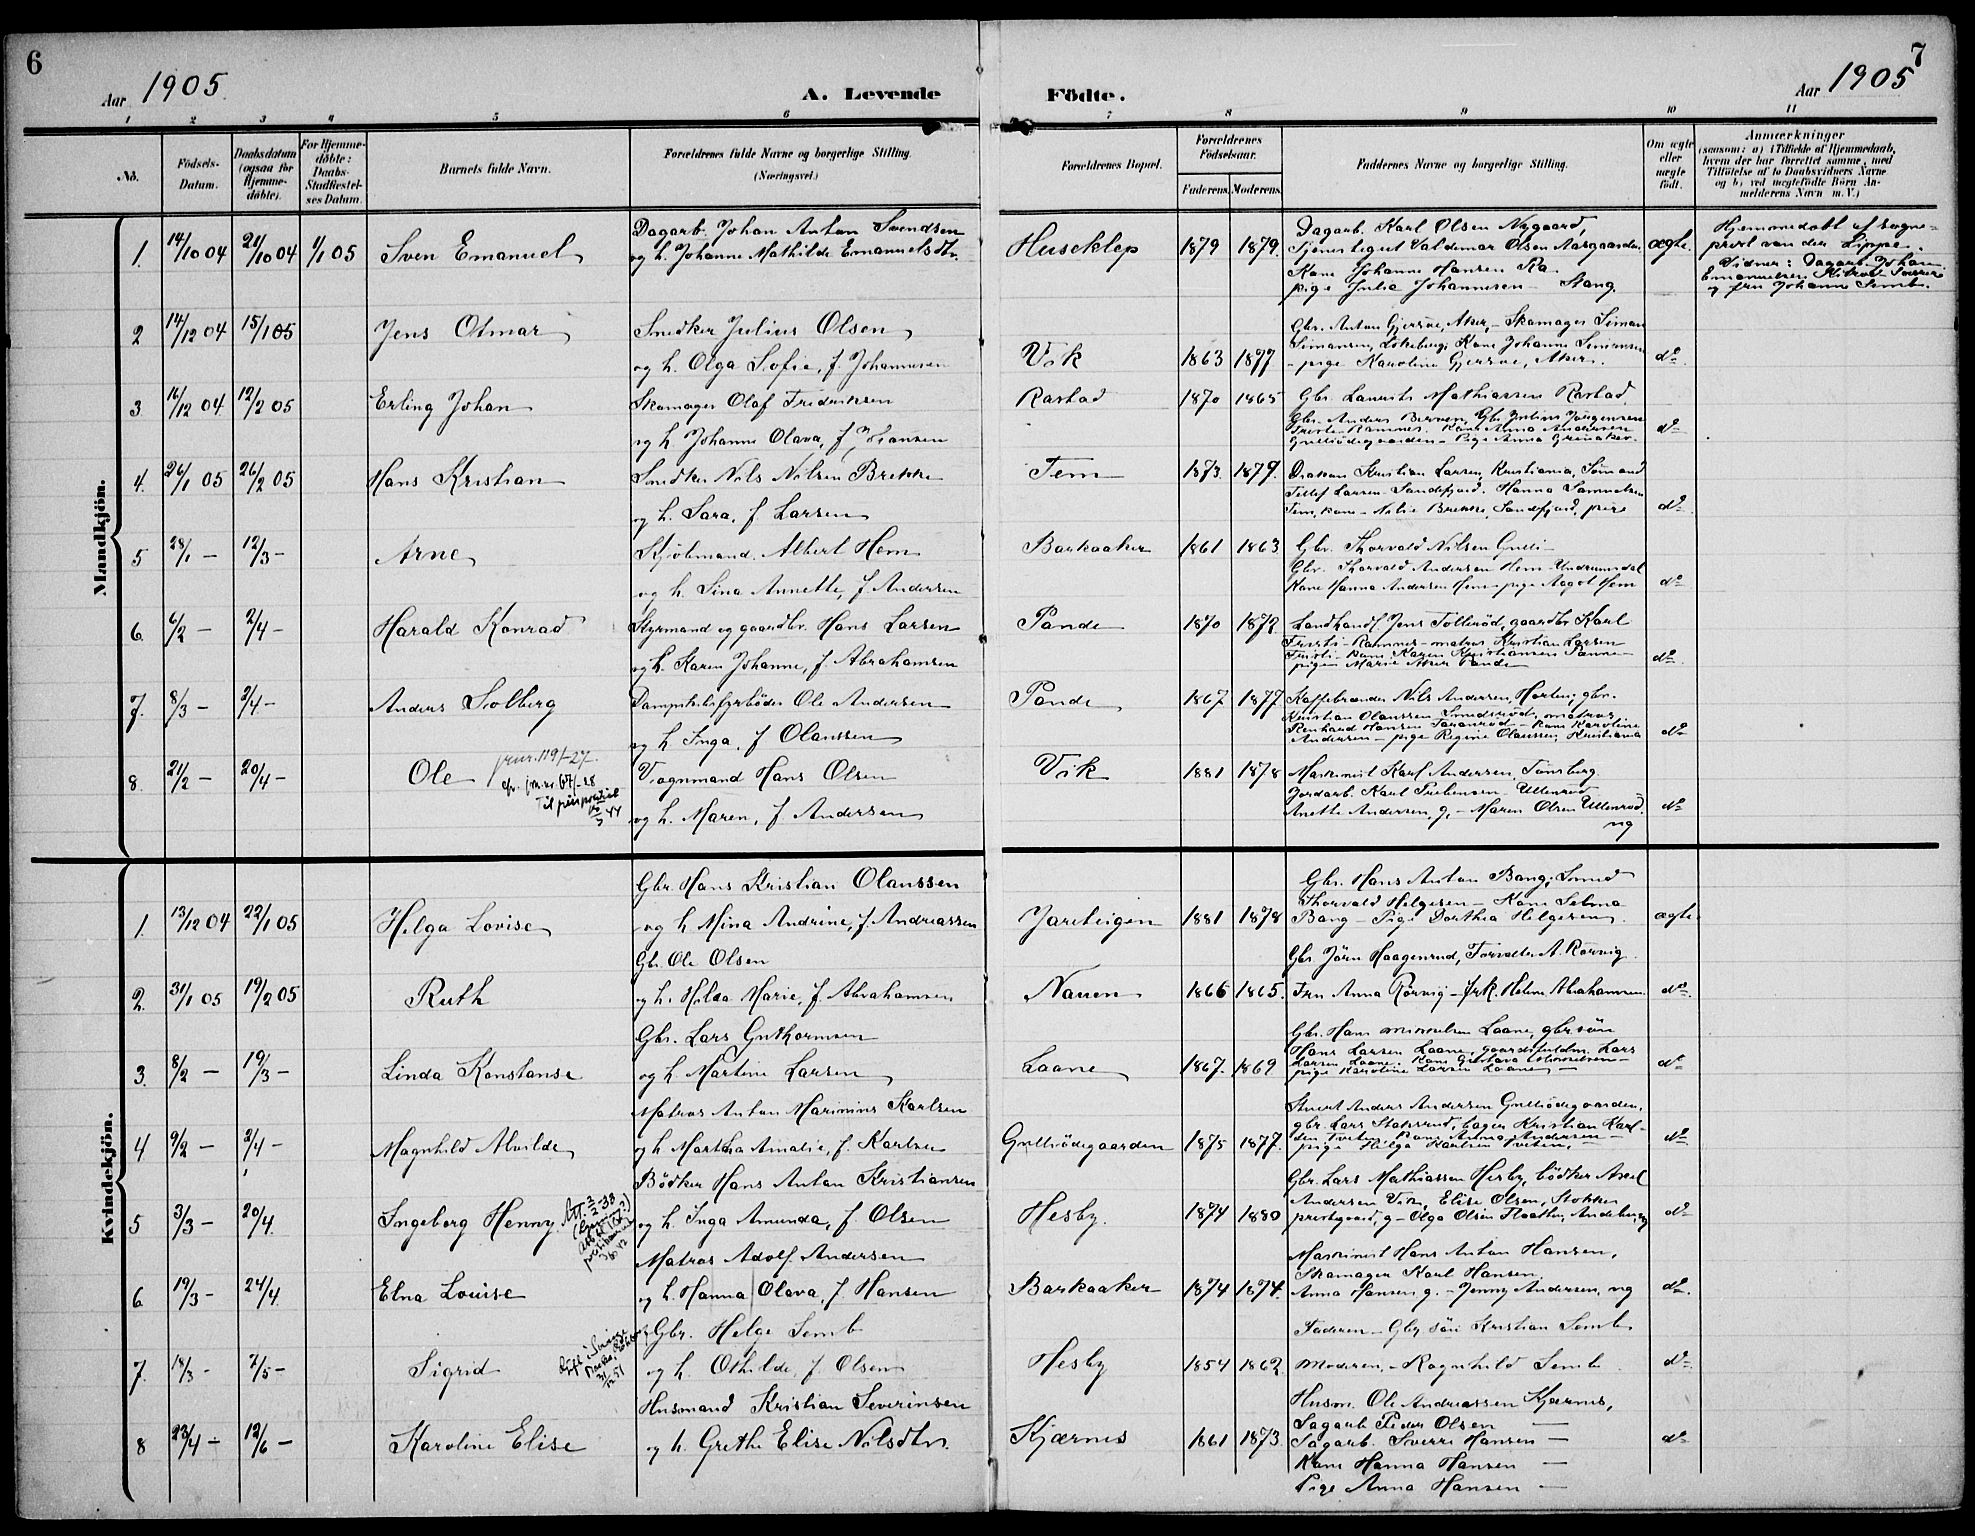 6
Aar 1905.
A. Levende
Födte.
Aar 1905
7
1 2 3 4 5 6 7 8 9 10 11
No.
Födsels-Datum.
Daabsdatum (ogsaa for Hjemme-döbte).
For Hjemme-döbte: Daabs-Stadfæstel-ses Datum.
Barnets fulde Navn.
Forældrenes fulde Navne og borgerlige Stilling.
(Næringsvei.)
Forældrenes Bopæl.
Forældrenes Födselsaar.
Faderens. Moderens.
Faddernes Navne og borgerlige Stilling.
Om ægte eller uægte födt.
Anmærkninger
(saasom: a) i Tilfælde af Hjemmedaab,
hvem der har forrettet samme, med
Tilföielse af to Daabsvidners Navne
og b) ved uægtefödte Börn An-
melderens Navn m. V.)
Mandkjön.
1. 14/10 04 21/10 04 1/1 05 Sven Emanuel
Dagarb. Johan Anton Svendsen
og h. Johanne Mathilde Emanuelsdtr.
Huseklep 1879 1879.
Dagarb. Karl Olsen Nygaard,
Tjenestegut Valdemar Olsen Aasgaarden
Kone Johanne Hansen Ra
pige Julie Johannesen - Stang.
ægte.
Hjemmedøbt af sogne-
prest van der Lippe.
Vidner: Dagarb. Johan
Emanuelsen
og fru Johanne Semb.
2 14/12 04 15/1 05 Jens Otmar
Snedker Julius Olsen
og h. Olga Sofie, f. Johannesen
Vik 1863 1877
Gbr. Anton Gjersøe, Aker, - Skomager Simon
Simonsen, Løkeberg; Kone Johanne Simonsen
- pige Karoline Gjersøe, Aker.
do
3 16/12 04 12/2 05 Erling Johan
Skomager Olaf Fredriksen
og h. Johanne Olava, f. Hansen
Rastad 1870 1865
Gbr. Laurits Mathiassen Rastad
Gbr. Anders Gbr. Julius Jørgensen
Kone Anna Andersen
Gulliødegaarden - Pige Anna Greinaker.
do
4. 26/1 05 26/2 05 Hans Kristian
Snedker Nils Nilsen Brekke
og h. Sara, f. Larsen
Tem 1873 1879.
Diakon Kristian Larsen, Kristiania, Sømand
Tellef Larsen - Sandefjord. Hanna Samuelsen
Tem, kone - Nilie Brekke, Sandefjord, pige
do
5 28/1 - 12/3 - Arne
Kjøbmand Albert Hem
og h. Lina Annette, f. Andersen
Barkaaker 1861 1863
Gbr. Thorvald Nilsen Gulli -
Gbr. Thorvald Andersen Hem - Undrumsdal
Kone Hanna Andersen Hem - pige Aagot Hem
do
6. 6/2 - 2/4 - Harald Konrad
Styrmand og gaardbr. Hans Larsen
og h. Karen Johanne, f. Abrahamsen
Pande 1870 1872.
Landhandl Jens Tollerød, gaardbr Karl
Fresti - Ramnes - matros Kristian Larsen
Fresti - kone Karen Kristiansen
pigen Marie Aker Pande
do.
7. 8/3 - 2/4 - Anders Solberg
Dampskibsfyrbøder Ole Andersen
og h. Inga, f. Olaussen
Pande 1867 1877
Kaffebrænder Nils Andersen, Horten; gbr.
Kristian Olaussen matros
Renhard Hansen - kone Karoline
Andersen - pige Regine Olaussen, Kristiania
do
8. 21/2 - 20/4 - Ole
119/-27.
67/-28
Vognmand Hans Olsen
og h. Maren, f. Andersen
Vik 1881 1878
Maskinist Karl Andersen, Tønsberg.
Jordarb. Karl Prebensen - Ullenrød
Anette Andersen, g, - Maren Olsen Ullenrød,
ug
do
Kvindekjön.
1. 13/12 04 22/1 05 Helga Lovise
Gbr. Hans Kristian Olaussen
og h Mina Andrine, f. Andreassen
Jarteigen 1881 1878
Gbr. Hans Anton Bang; Smed
Thorvald Helgesen - Kone Selma
Bang - Pige Dorthea Helgesen.
ægte.
2. 31/1 05 19/2 05 Ruth
Gbr. Ole Olsen
og h. Hilda Marie, f. Abrahamsen
Nauen 1866 1865.
Gbr. Jørn Haagenrud, Forvalter A. Rørvig.
Fru Anna Rørvig - frk. Helene Abrahamsen
do.
3. 8/2 - 19/3 - Linda Konstanse
Gbr. Lars Guthormsen
og h. Martine Larsen
Laane 1867. 1869
Gbr. Hans Mikkelsen Laane, gbr. søn
Hans Larsen Laane, Lars
Larsen Laane. Kone Gustava Mikkelsen -
pige Karoline Larsen Laane -
do
4 9/2 - 2/4 - Magnhild Alvilde
Matros Anton Marinius Karlsen
og h Martha Amalie, f. Karlsen
Gulliødegaarden 1875 1877.
Stuert Anders Andersen Gulliødegaarden,
gbr. Lars bager Kristian Karl-
Kone Anna Andersen -
pige Helga Karlsen Tveten
do
5 3/3 - 20/4. Ingeborg Henny.
Att. 3/2-38
Bødker Hans Anton Kristiansen
og h. Inga Amunda, f. Olsen
Hesby. 1874 1880
Gbr. Lars Mathiassen Hesby, bødker Axel
Andersen Vik, Elise Olsen, Stokke
prestegaard, g - Olga Olsen Andebu, ug
do
6 19/3 - 24/4. Elna Louise
Matros Adolf Andersen
og h. Hanna Olava, f. Hansen
Barkaaker 1874 1874.
Maskinist Hans Anton Hansen,
Skomager Karl Hansen.
Anna Hansen g. - Jenny Andersen, ug
do.
7. 18/3 - 7/5 - Sigrid
Gbr. Helge Semb
og h. Othilde, f. Olsen
Hesby 1854 1862
Faderen - Gbr søn Kristian Semb
Moderen, - Ragnhild Semb
do
8 23/4 - 12/6 - Karoline Elise
Husmand Kristian Severinsen
og h. Grethe Elise Nilsdtr.
Kjærnes 1861 1873.
Husm. Ole Andreassen Kjærnes,
Sagarb Peder Olsen -
Sagarb. Sverre Hansen -
Kone Hanna Hansen -
Pige Anna Hansen -
do